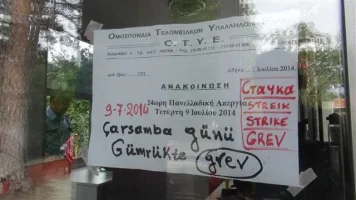 ΟΜΟΣΠΟΝΔΙΑ ΤΕΛΩΝΕΙΑΚΩΝ ΥΠΑΛΛΗΛΩΝ
Ο. Τ. Υ. Ε.
Ιουλίου 2014
ΑΝΑΚΟΙΝΩΣΗ
24ωρη Πανελλαδική Απεργία
9-7-2014
Τετάρτη 9 Ιουλίου 2014
Çarsamba günü
Gümrükte grev
Стачка
STREIK
STRIKE
GREV